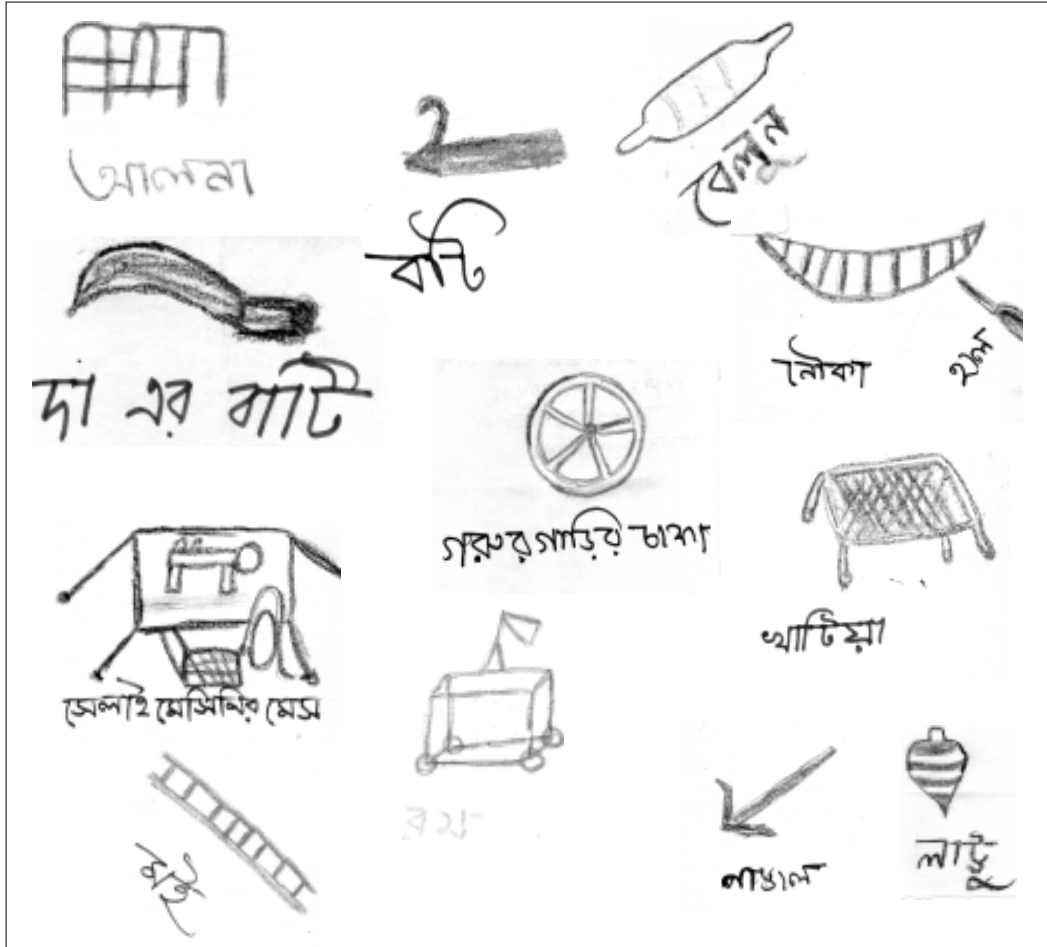 আলনা
বেলুন
বটি
দা এর বাটি
নৌকা
হাল
গরুর গাড়ির চাকা
খাটিয়া
সেলাই মেসিনির মেস
রথ
মই
লাঙাল
লাট্টু